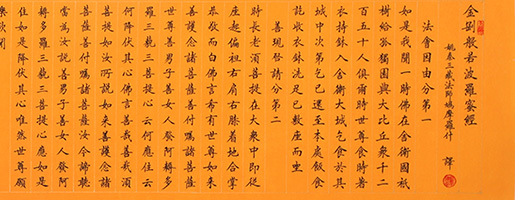 金剛般若波羅蜜經
姚秦三藏法師鳩摩羅什 譯
法會因由分第一
如是我聞一時佛在舍衛國祇
樹給孤獨園與大比丘衆千二
百五十人俱爾時世尊食時著
衣持鉢入舍衛大城乞食於其
城中次第乞已還至本處飯食
訖收衣鉢洗足已敷座而坐
善現啓請分第二
時長老須菩提在大衆中即從
座起偏袒右肩右膝着地合掌
恭敬而白佛言希有世尊如來
善護念諸菩薩善付囑諸菩薩
世尊善男子善女人發阿耨多
羅三藐三菩提心云何應住云
何降伏其心佛言善哉善哉須
菩提如汝所說如來善護念諸
菩薩善付囑諸菩薩汝今諦聽
當爲汝說善男子善女人發阿
耨多羅三藐三菩提心應如是
住如是降伏其心唯然世尊願
樂欲聞